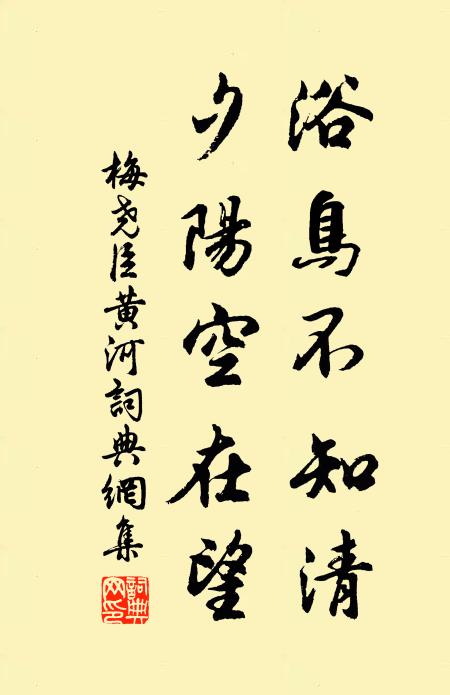 浴鳥不知清
夕陽空在望
梅堯臣黄河詞典網集
詞典網印